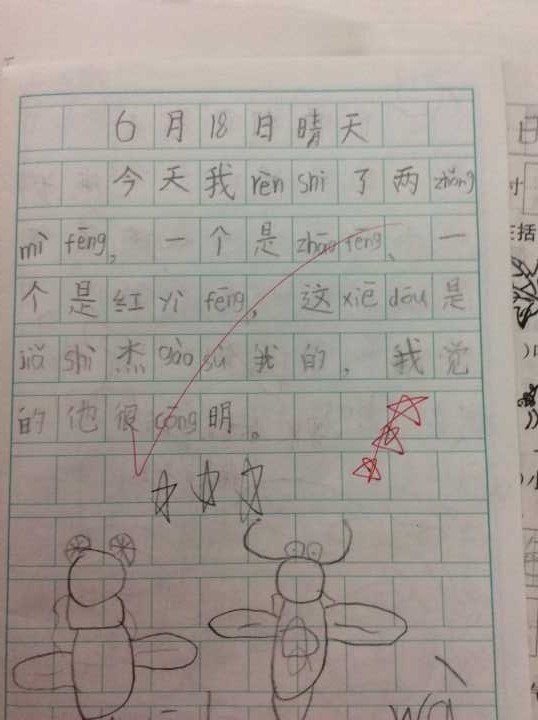 6月18日晴天
今天我rèn shi了两zhǒng
mì fēng。一个是zhāo fēng、一
个是红yì fēng，这xiē dōu是
jiǎ shì杰gào sù我的，我觉
的他很cōng明。